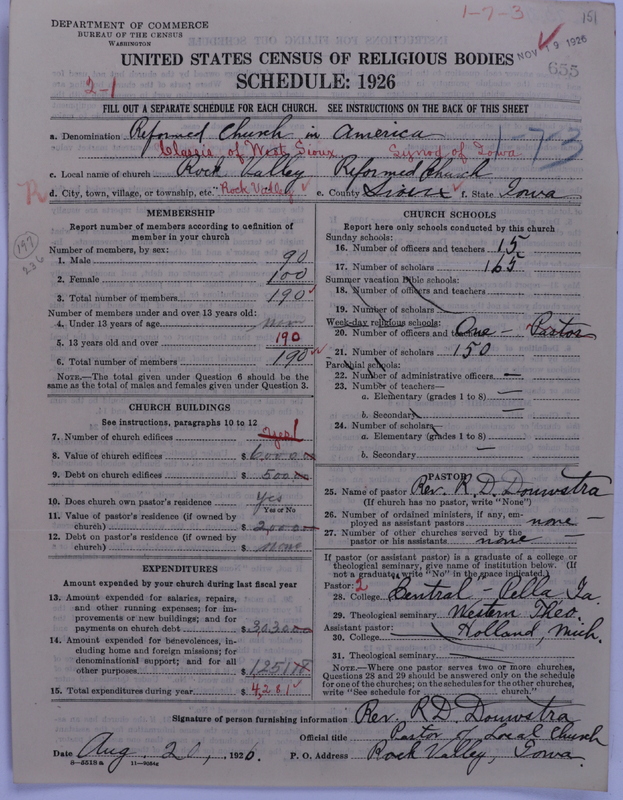 1-7-3
151
DEPARTMENT OF COMMERCE
BUREAU OF THE CENSUS
WASHINGTON
NOV 19 1926
655
UNITED STATES CENSUS OF RELIGIOUS BODIES
SCHEDULE: 1926
2-1
FILL OUT A SEPARATE SCHEDULE FOR EACH CHURCH. SEE INSTRUCTIONS ON THE BACK OF THIS SHEET
a. Denomination Reformed Church in America
Classis of West Sioux Synod of Iowa 1-73
c. Local name of church Rock Valley Reformed Church
R d. City, town, village, or township, etc. Rock Valley e. County Sioux f. State Iowa
MEMBERSHIP
Report number of members according to definition of member in your church
197
236
Number of members, by sex:
1. Male 90
2. Female 100
3. Total number of members 190
Number of members under and over 13 years old:
4. Under 13 years of age none
5. 13 years old and over 190
6. Total number of members 190
NOTE.—The total given under Question 6 should be the same as the total of males and females given under Question 3.
CHURCH BUILDINGS
See instructions, paragraphs 10 to 12
7. Number of church edifices 1
8. Value of church edifices $ 6000.00
9. Debt on church edifices $ 500.00
10. Does church own pastor's residence yes
Yes or No
11. Value of pastor's residence (if owned by church) $ 2000.00
12. Debt on pastor's residence (if owned by church) $ None
EXPENDITURES
Amount expended by your church during last fiscal year
13. Amount expended for salaries, repairs, and other running expenses; for improvements or new buildings; and for payments on church debt $ 3030.00
14. Amount expended for benevolences, including home and foreign missions; for denominational support; and for all other purposes $ 1251
15. Total expenditures during year $ 4,281
CHURCH SCHOOLS
Report here only schools conducted by this church
Sunday schools:
16. Number of officers and teachers 15
17. Number of scholars 165
Summer vacation Bible schools:
18. Number of officers and teachers
19. Number of scholars
Week-day religious schools:
20. Number of officers and teachers One - Pastor
21. Number of scholars 150
Parochial schools:
22. Number of administrative officers —
23. Number of teachers—
a. Elementary (grades 1 to 8) —
b. Secondary —
24. Number of scholars
a. Elementary (grades 1 to 8)
b. Secondary —
PASTOR
25. Name of pastor Rev. R. D. Douwstra
(If church has no pastor, write "None")
26. Number of ordained ministers, if any, employed as assistant pastors none —
27. Number of other churches served by the pastor or his assistant none —
If pastor (or assistant pastor) is a graduate of a college or theological seminary, give name of institution below. (If not a graduate, write "No" in the space indicated.)
Pastor: 2
28. College Central - Pella Ia.
29. Theological seminary Western Theo.
Assistant pastor: Holland, Mich.
30. College
31. Theological seminary
NOTE.—Where one pastor serves two or more churches, Questions 28 and 29 should be answered only on the schedule for one of the churches; on the schedules for the other churches, write "See schedule for church."
Signature of person furnishing information Rev. R. D. Douwstra
Official title Pastor of Local Church
Date Aug. 20, 1926. P. O. Address Rock Valley, Iowa.
8-5518a